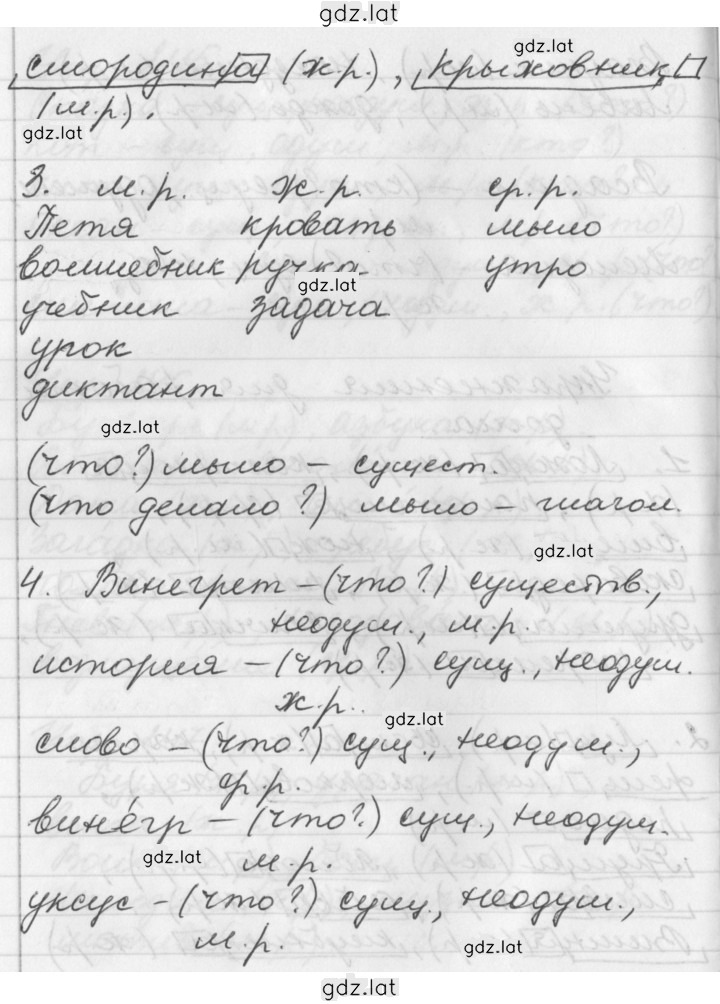 gdz.lat
gdz.lat
смородина (ж.р.), крыжовник
(м.р.).
gdz.lat
3. м.р. ж.р. ср.р.
Петя кровать мыло
волшебник ручка утро
gdz.lat
учебник задача
урок
диктант
gdz.lat
(что?) мыло – сущест.
(что делало?) мыло – глагол.
gdz.lat
4. Винегрет – (что?) существ.,
неодуш., м.р.
история – (что?) сущ., неодуш.
ж.р..
gdz.lat
слово – (что?) сущ., неодуш.,
ср.р.
вине́гр – (что?) сущ., неодуш.
gdz.lat
м.р.
уксус – (что?) сущ., неодуш.,
м.р.
gdz.lat
gdz.lat